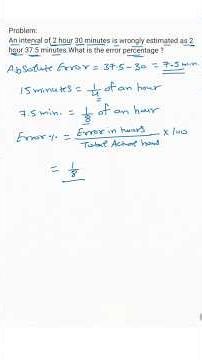 Problem:
An interval of 2 hour 30 minutes is wrongly estimated as 2
hour 37.5 minutes.What is the error percentage ?
Absolute Error = 37.5-30 = 7.5 min.
15 minutes = 1/4 of an hour
7.5 min. = 1/8 of an hour
Error % = Error in hours / Total Actual hours × 100
= 1/8